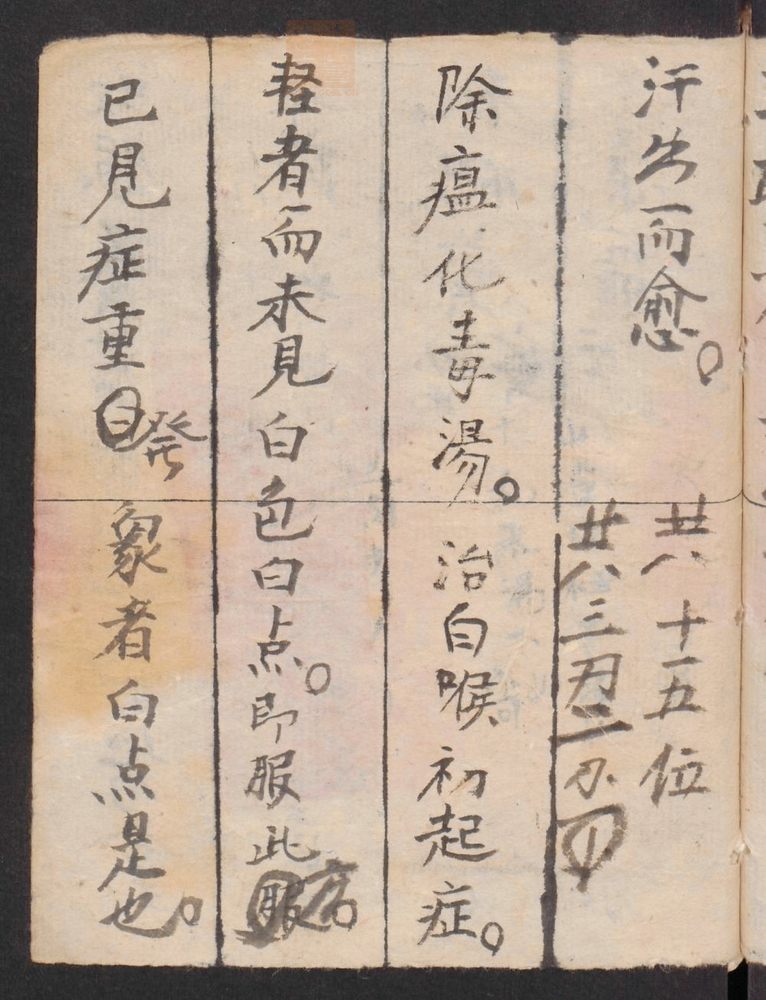 汗出而愈。
廿八 十一五位
廿八三君二
除瘟化毒湯。治白喉初起症。
輕者而未見白色白点。即服此方。
已見症重發象者白点是也。